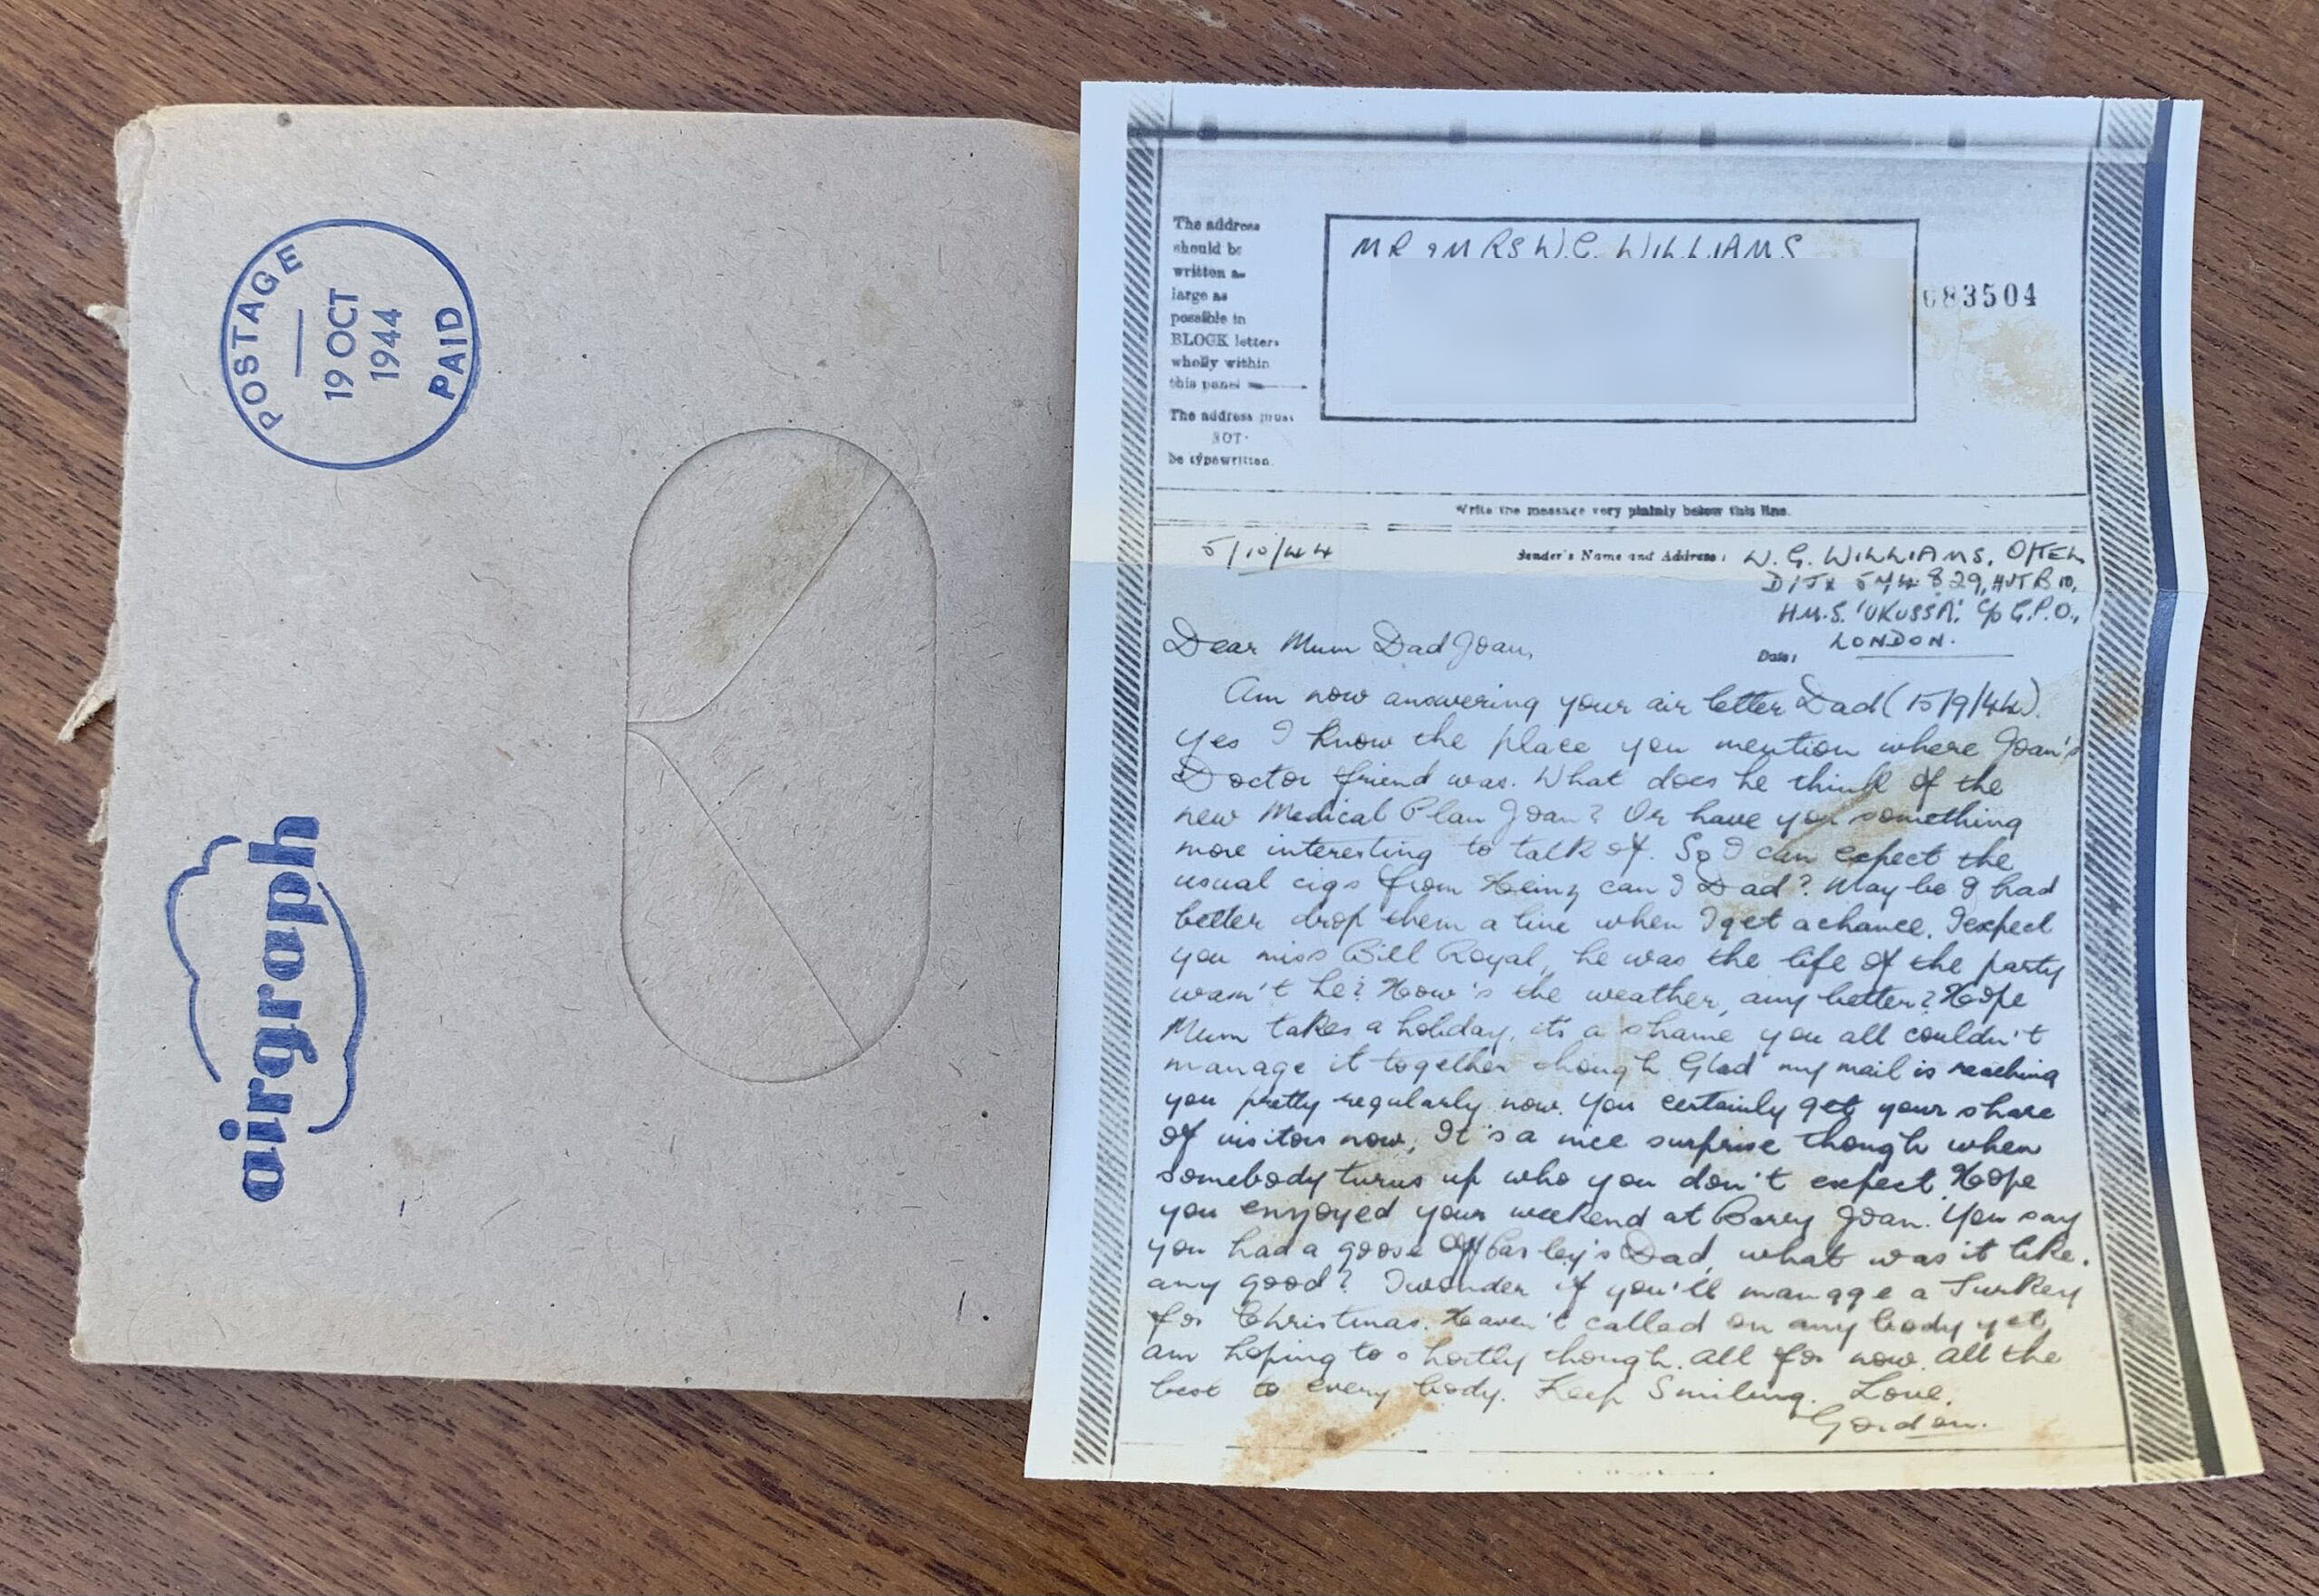 POSTAGE
19 OCT
1944
PAID
airgraph
The address
should be
written as
large as
possible in
BLOCK letters
wholly within
this panel
The address must
NOT
be typewritten.
MR & MRS W.C. WILLIAMS
683504
Write the message very plainly below this line.
5/10/44
Sender's Name and Address: W. G. WILLIAMS, O/TEL
D/JX 574829, HUT B 10,
H.M.S. 'UKUSSA' C/o G.P.O.,
LONDON.
Date:
Dear Mum Dad Joan,
Am now answering your air letter Dad (15/9/44).
Yes I know the place you mention where Joan's
Doctor friend was. What does he think of the
new Medical Plan Joan? Or have you something
more interesting to talk of. So I can expect the
usual cigs from Heinz can I Dad? May be I had
better drop them a line when I get a chance. I expect
you miss Bill Royal, he was the life of the party
wasn't he? How's the weather, any better? Hope
Mum takes a holiday, it's a shame you all couldn't
manage it together though. Glad my mail is reaching
you pretty regularly now. You certainly get your share
of visitors now, It's a nice surprise though when
somebody turns up who you don't expect. Hope
you enjoyed your weekend at Barry Joan. You say
you had a goose off Dad, what was it like.
any good? I wonder if you'll manage a Turkey
for Christmas. Haven't called on any body yet,
am hoping to shortly though. All for now. All the
best to every body. Keep Smiling. Love.
Gordon.